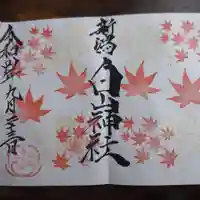 新潟
白山神社
令和四年九月二十三日